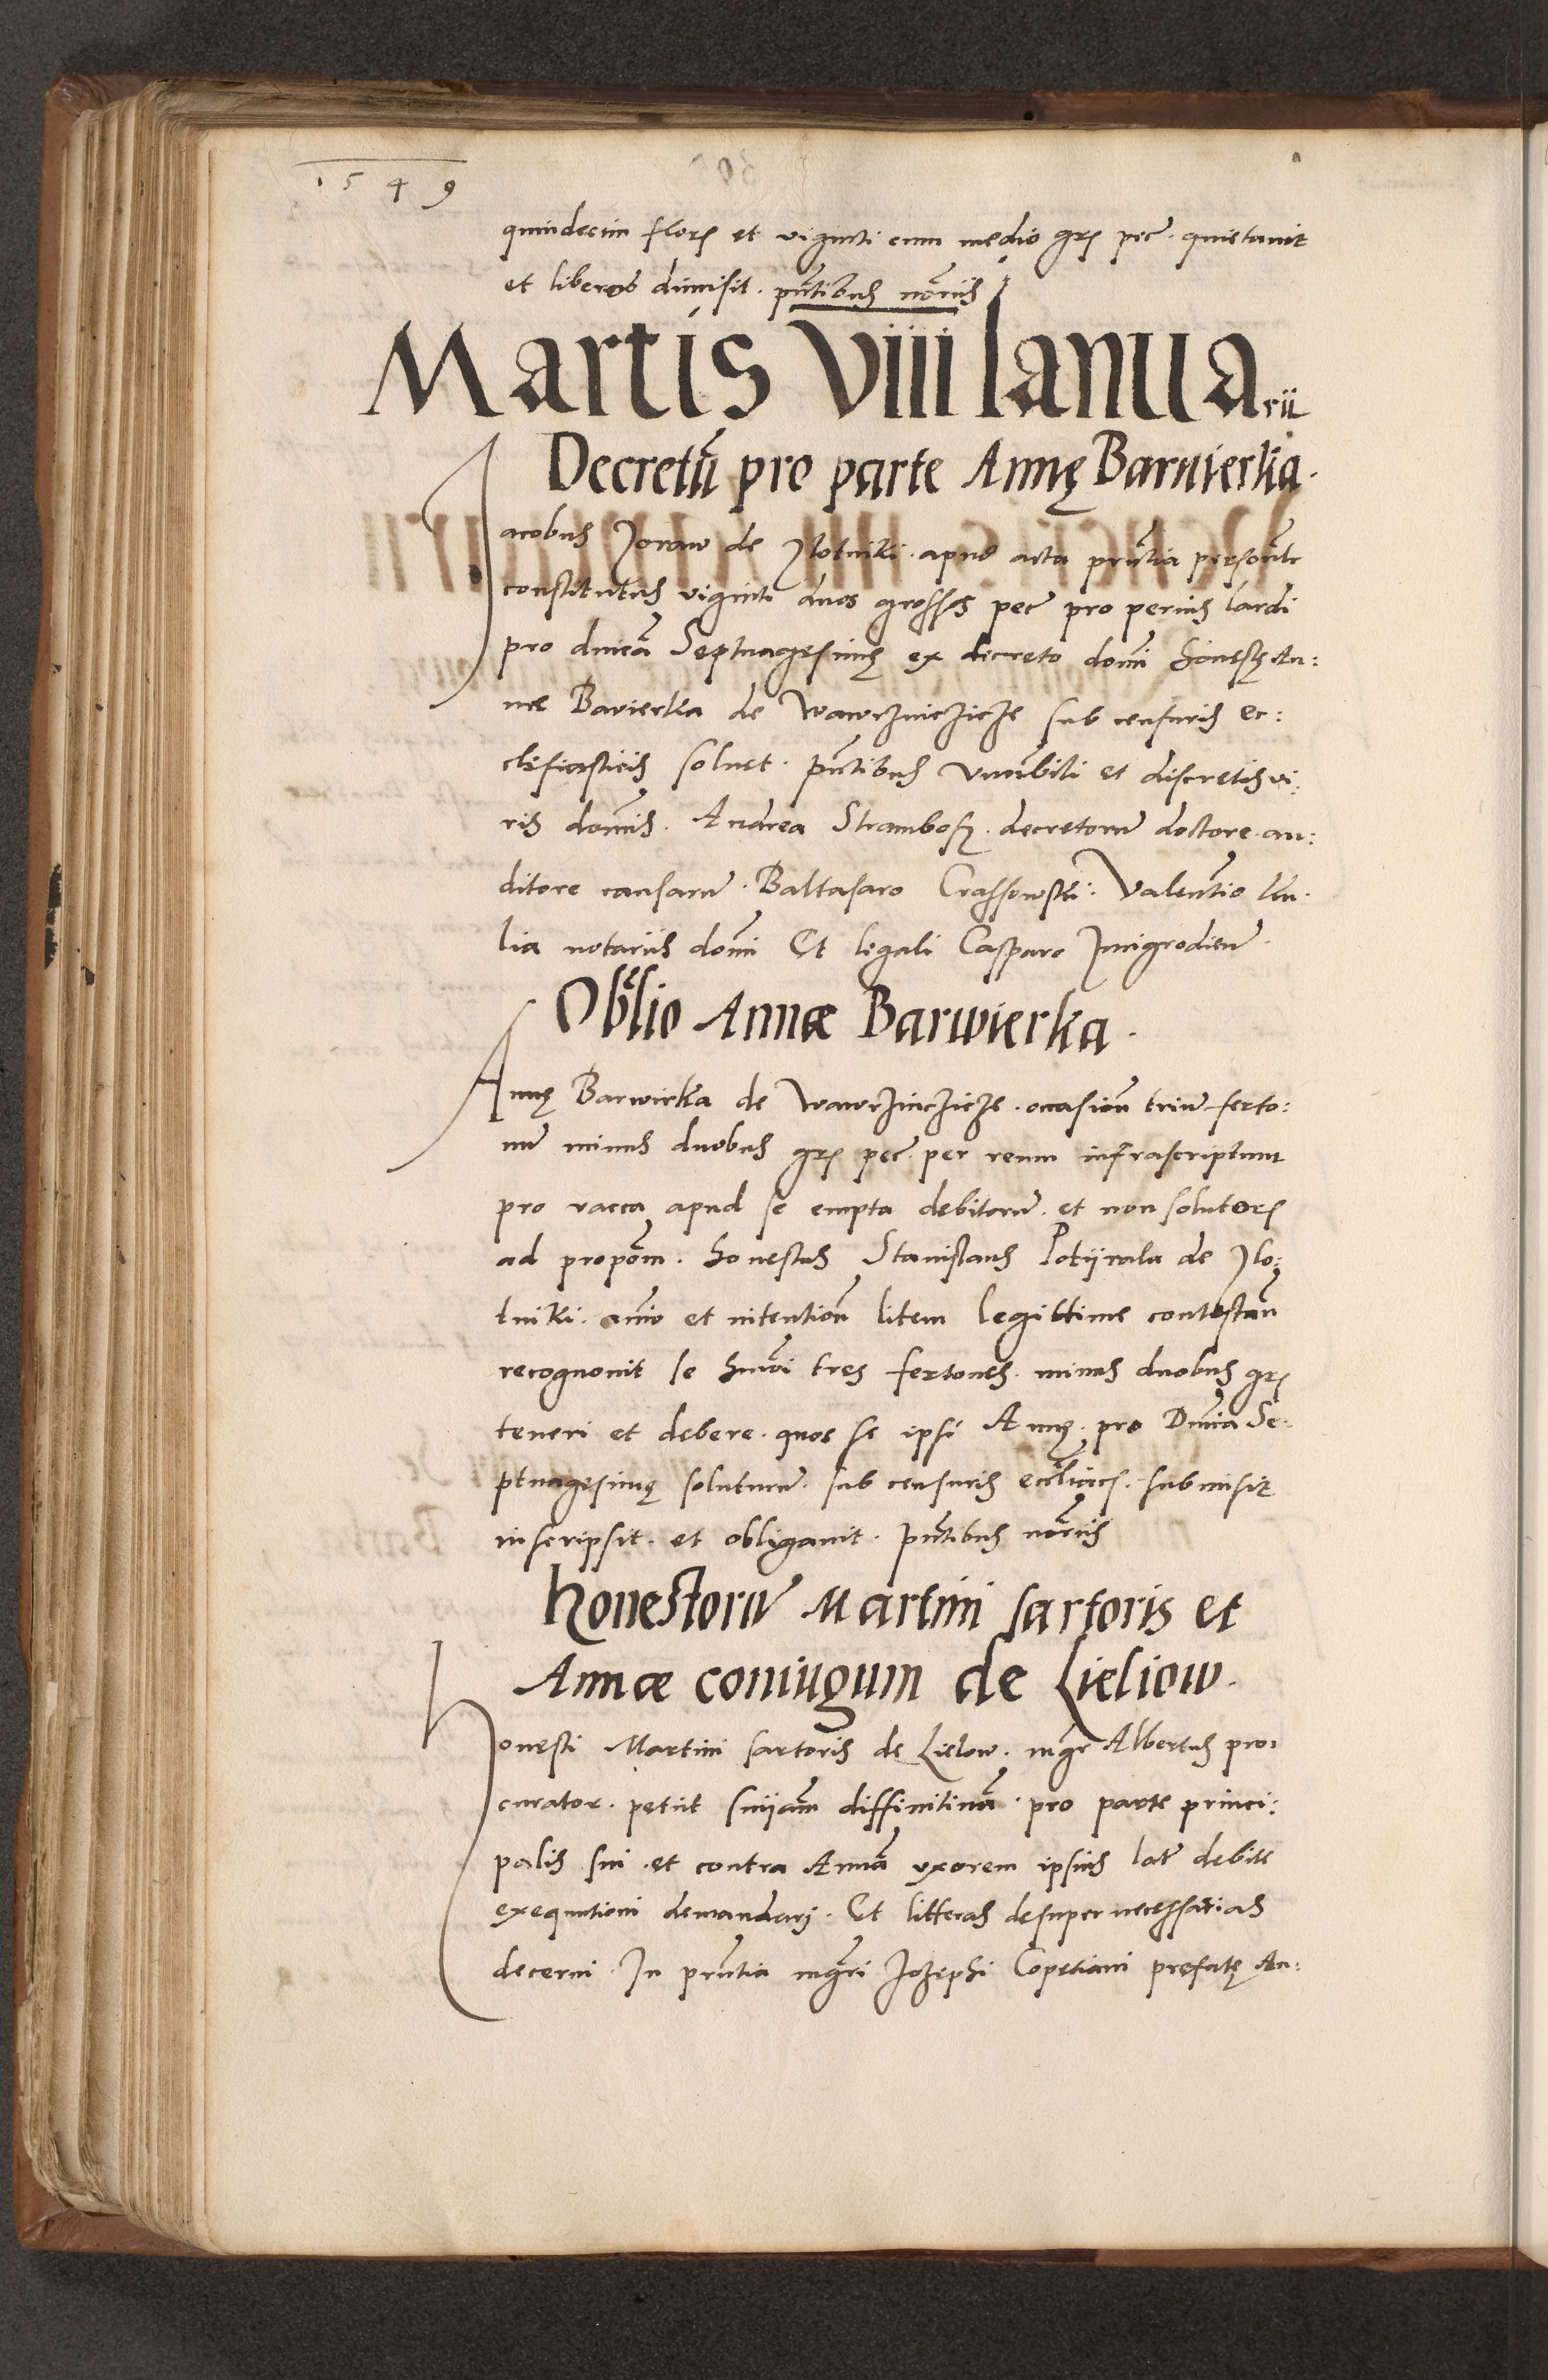 1549
quindecim flor et viginti cum medio gr pec. quietavit
et liberos dimisit. pntibus notariis
Martis VIII Ianuarii
Decretu pro parte Annę Barwierka.
Jacobus Joraw de Zlotniki. apud acta pntia personlr
constitutus viginti duos grosses pec pro pernis lardi
pro dnica Septuagesimę ex decreto domi honestę An:
nae Bavierka de Wawrzinczicze sub censuris ec:
clesiasticis solvet. pntibus Vnabili et discretis vi:
ris domis. Andrea Strambosz. decretoru doctore. au:
ditore causaru. Baltasaro Crassowski. Valentio
lia notariis domi Et legali Casparo Zmigrodien.
Oblio Annae Barwierka.
Annę Barwierka de Wawrzinczicze. occasion triu ferto:
nu minus duobus gr pec. per reum infrascriptum
pro vacca apud se empta debitoru. et non solutor
ad propom. honestus Stanislaus Potyrala de Zlo:
tniki. animo et intention litem legittime contestan
recognovit se hmoi tres fertones. minus duobus gr
teneri et debere. quos se ipsi Annę. pro Dnica Se:
ptuagesimę soluturu. sub censuris eccliacis. submisit
inscripsit. et obligavit. pntibus notariis
Honestoru Martini sartoris et
Annae coniugum de Lieliow.
Honesti Martini sartoris de Lielow. mgr Albertus pro:
curator. petiit snijam diffinitiva. pro parte princi:
palis sui. et contra Anna uxorem ipsius lat debite
exequutioni demandari. Et litteras desuper necessarias
decerni. In pntia mgri Jozephi Copetiani prefatę An: